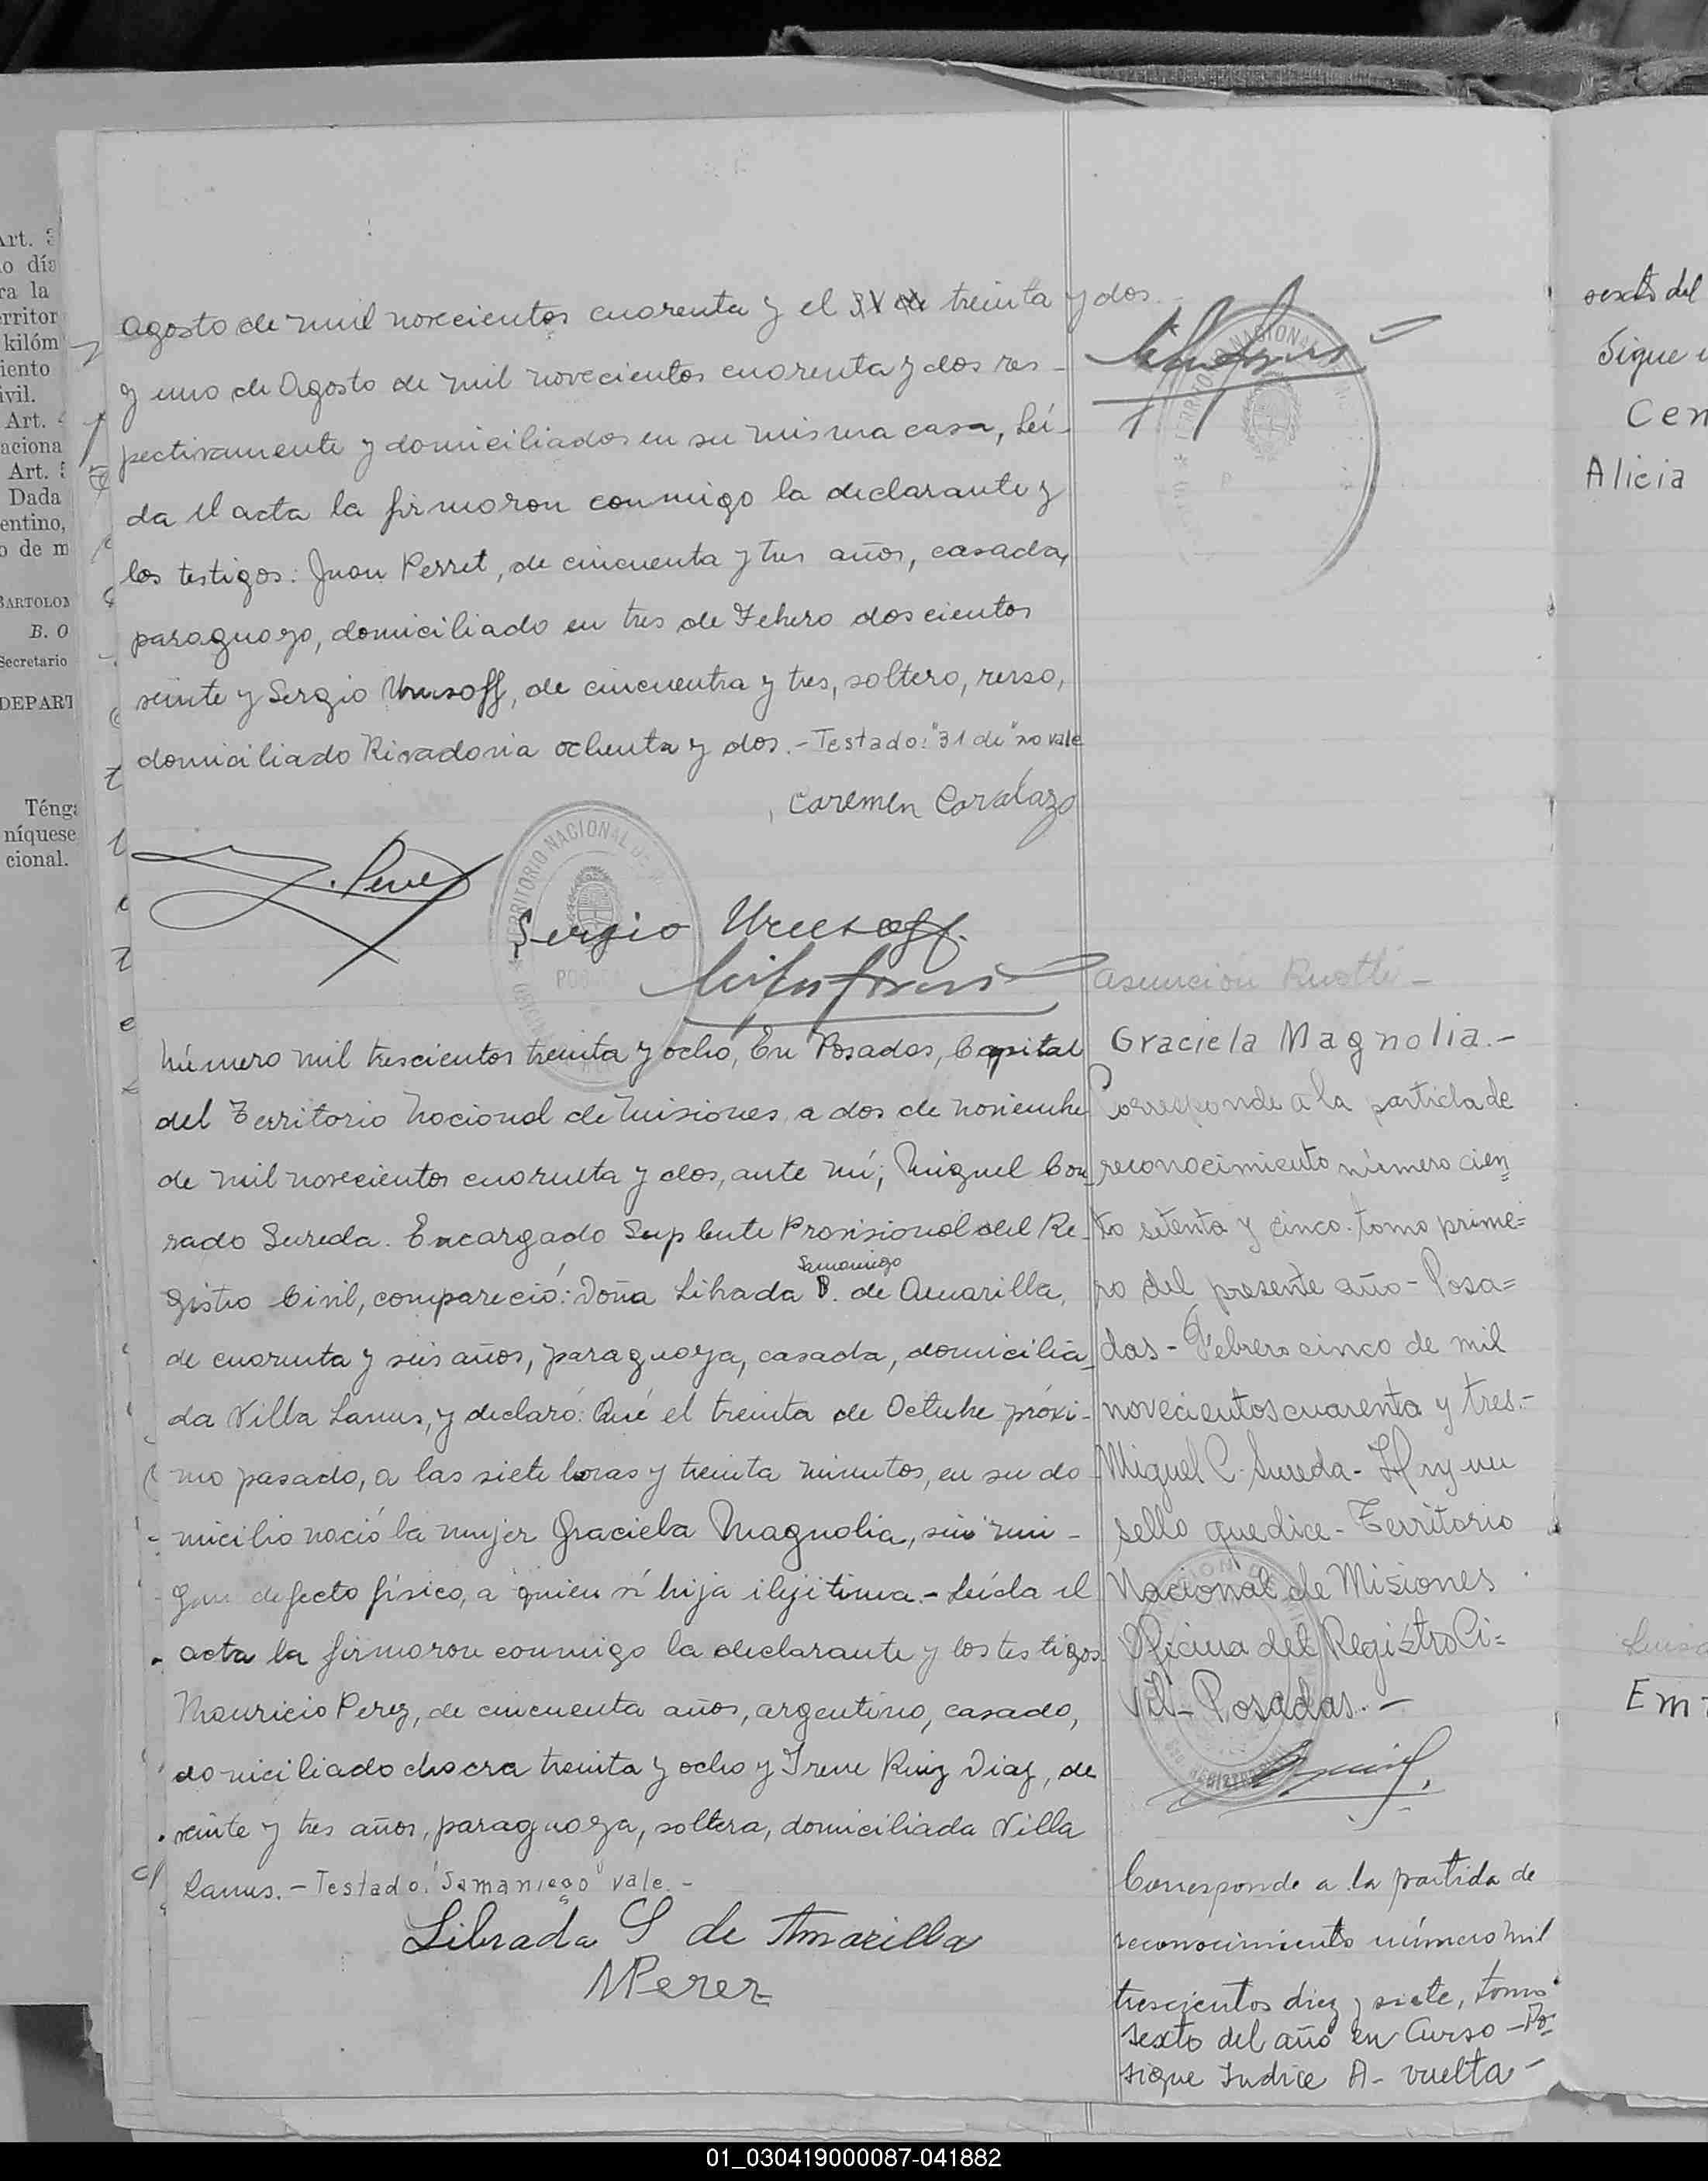 Agosto de mil novecientos cuarenta y el treinta y dos
y uno de Agosto de mil novecientos cuarenta y dos res-
pectivamente y domiciliados en su misma casa, Leí-
da el acta la firmaron conmigo la declarante y
los testigos: Juan Perret, de cincuenta y tres años, casado,
paraguayo, domiciliado en tres de Febrero doscientos
veinte y Sergio Urusoff, de cincuentra y tres, soltero, russo,
domiciliado Rivadavia ochenta y dos.- Testado: "31 de" no vale
Carmen Caralazo
J. Perret
Sergio Urussoff.
TERRITORIO NACIONAL DE
Asunción
Número mil trescientos treinta y ocho, En Posadas, Capital
del Territorio Nacional de Misiones a dos de noviembre
de mil novecientos cuarenta y dos, ante mí; Miguel Con-
rado Sureda. Encargado Suplente Provisional del Re-
Samaniego
gistro Civil, compareció: Doña Librada B. de Amarilla,
de cuarenta y seis años, paraguaya, casada, domicilia-
da Villa Lanus, y declaró: Qué el treinta de Octubre próxi-
mo pasado, a las siete horas y treinta minutos, en su do-
micilio nació la mujer Graciela Magnolia, sin nin-
gun defecto físico, a quien ví hija ilejitima.- Leída el
acta la firmaron conmigo la declarante y los testigos
Mauricio Perez, de cincuenta años, argentino, casado,
domiciliado chacra treinta y ocho y Irene Ruiz Diaz, de
veinte y tres años, paraguaya, soltera, domiciliada Villa
Lanus.- Testado: "Samaniego" vale.-
Librada S de Amarilla
MPerez
Graciela Magnolia.-
Corresponde a la partida de
reconocimiento número cien
to setenta y cinco. tomo prime=
ro del presente año - Posa=
das - Febrero cinco de mil
novecientos cuarenta y tres.-
Miguel C. Sureda - Hay un
sello que dice - Territorio
Nacional de Misiones
Oficina del Registro Ci=
vil - Posadas.-
Corresponde a la partida de
reconocimiento número mil
trescientos diez y siete, tomo
sexto del año en Curso - Po-
sigue Indice A - vuelta -
Art. 3
o día
ra la
erritor
kilóm
iento
ivil.
Art. 4
aciona
Art. 5
Dada
entino,
o de m
BARTOLOM
B. O
Secretario
DEPART
Ténga
níquese
cional.
sexto del
Sigue
Cen
Alicia
Em
01_030419000087-041882